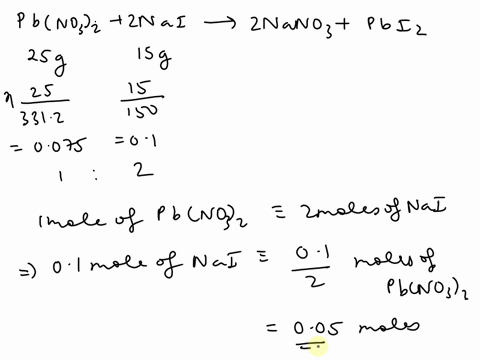 Pb(NO3)2 + 2NaI → 2NaNO3 + PbI2
25g 15g
n 25/331.2 15/150
= 0.075 = 0.1
1 : 2
1mole of Pb(NO3)2 ≡ 2moles of NaI
⇒ 0.1 mole of NaI ≡ 0.1/2 moles of Pb(NO3)2
= 0.05 moles